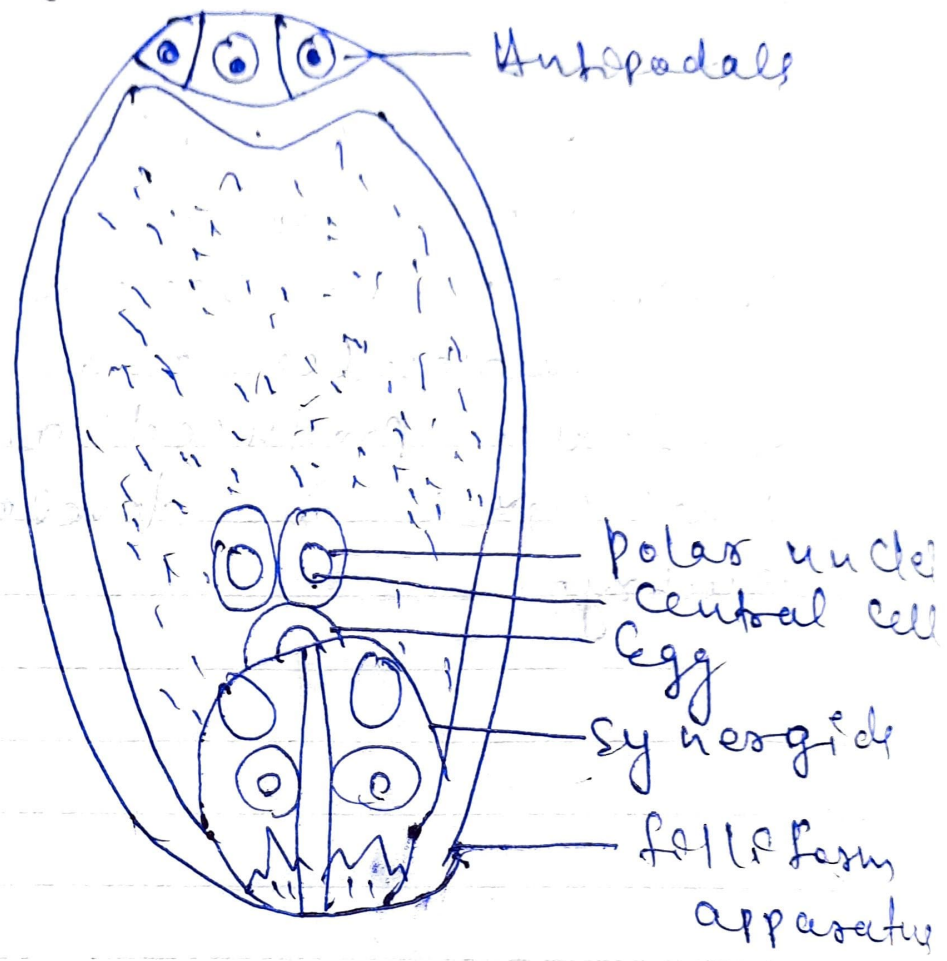 Antipodals
Polar nucle
Central cell
Egg
Synergids
filliform
apparatus